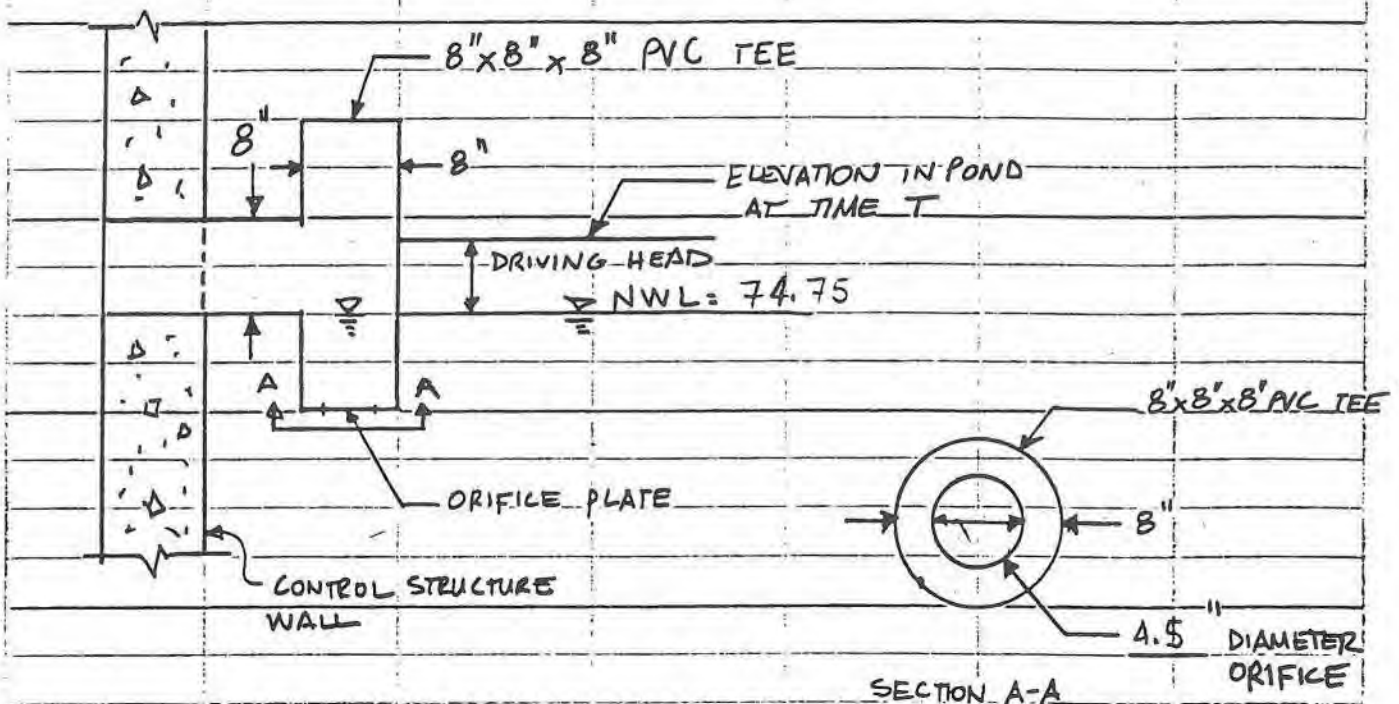 8"x8"x 8" PVC TEE
8"
8"
ELEVATION IN POND
AT TIME T
DRIVING HEAD
NWL= 74.75
A
A
8"x8"x8" PVC TEE
ORIFICE PLATE
8"
CONTROL STRUCTURE
WALL
4.5" DIAMETER
ORIFICE
SECTION A-A